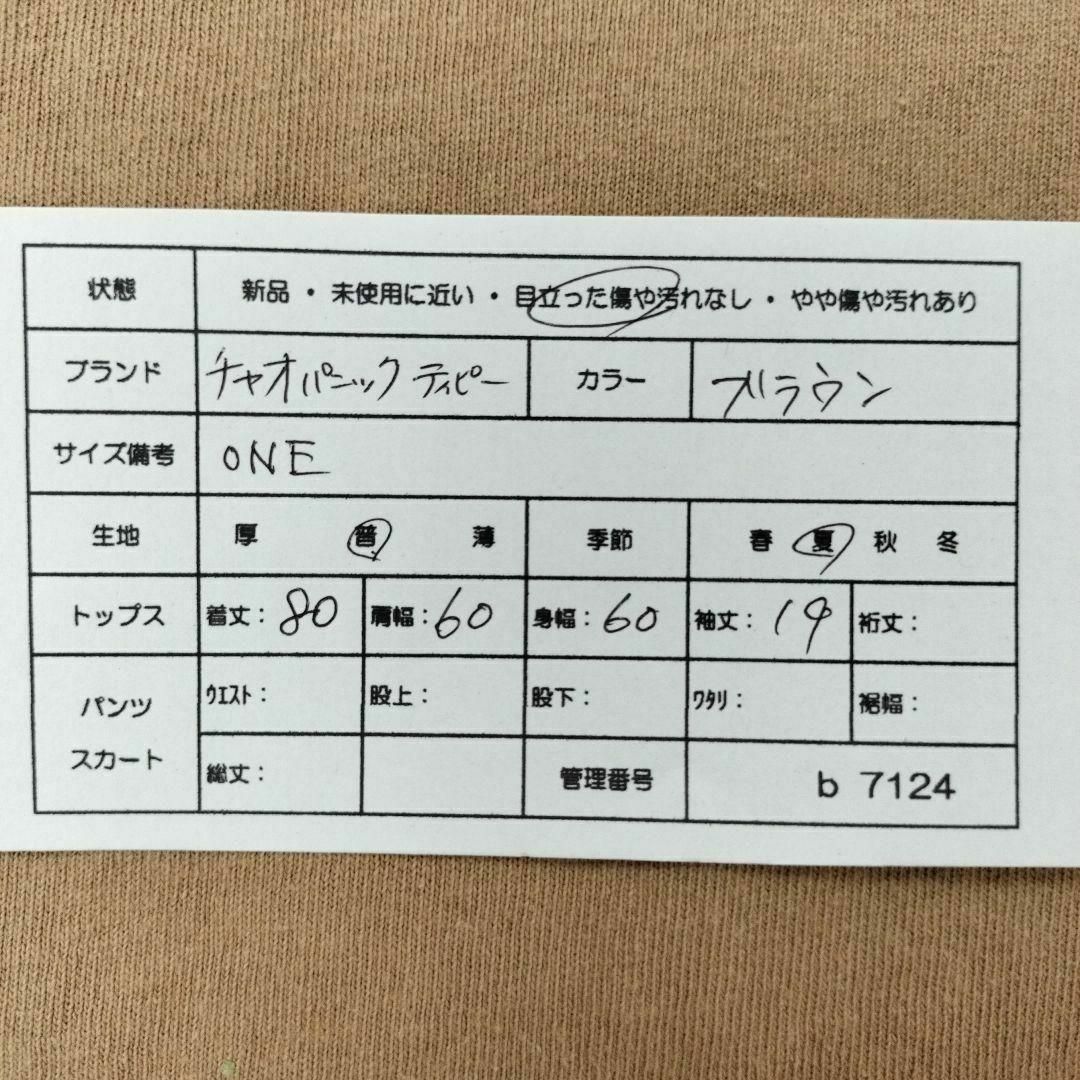 状態 新品・未使用に近い・目立った傷や汚れなし・やや傷や汚れあり
ブランド チャオパニックティピー カラー ブラウン
サイズ備考 ONE
生地 厚 普 薄 季節 春 夏 秋 冬
トップス 着丈：80 肩幅：60 身幅：60 袖丈：19 裄丈：
パンツ ウエスト： 股上： 股下： ワタリ： 裾幅：
スカート 総丈： 管理番号 b 7124